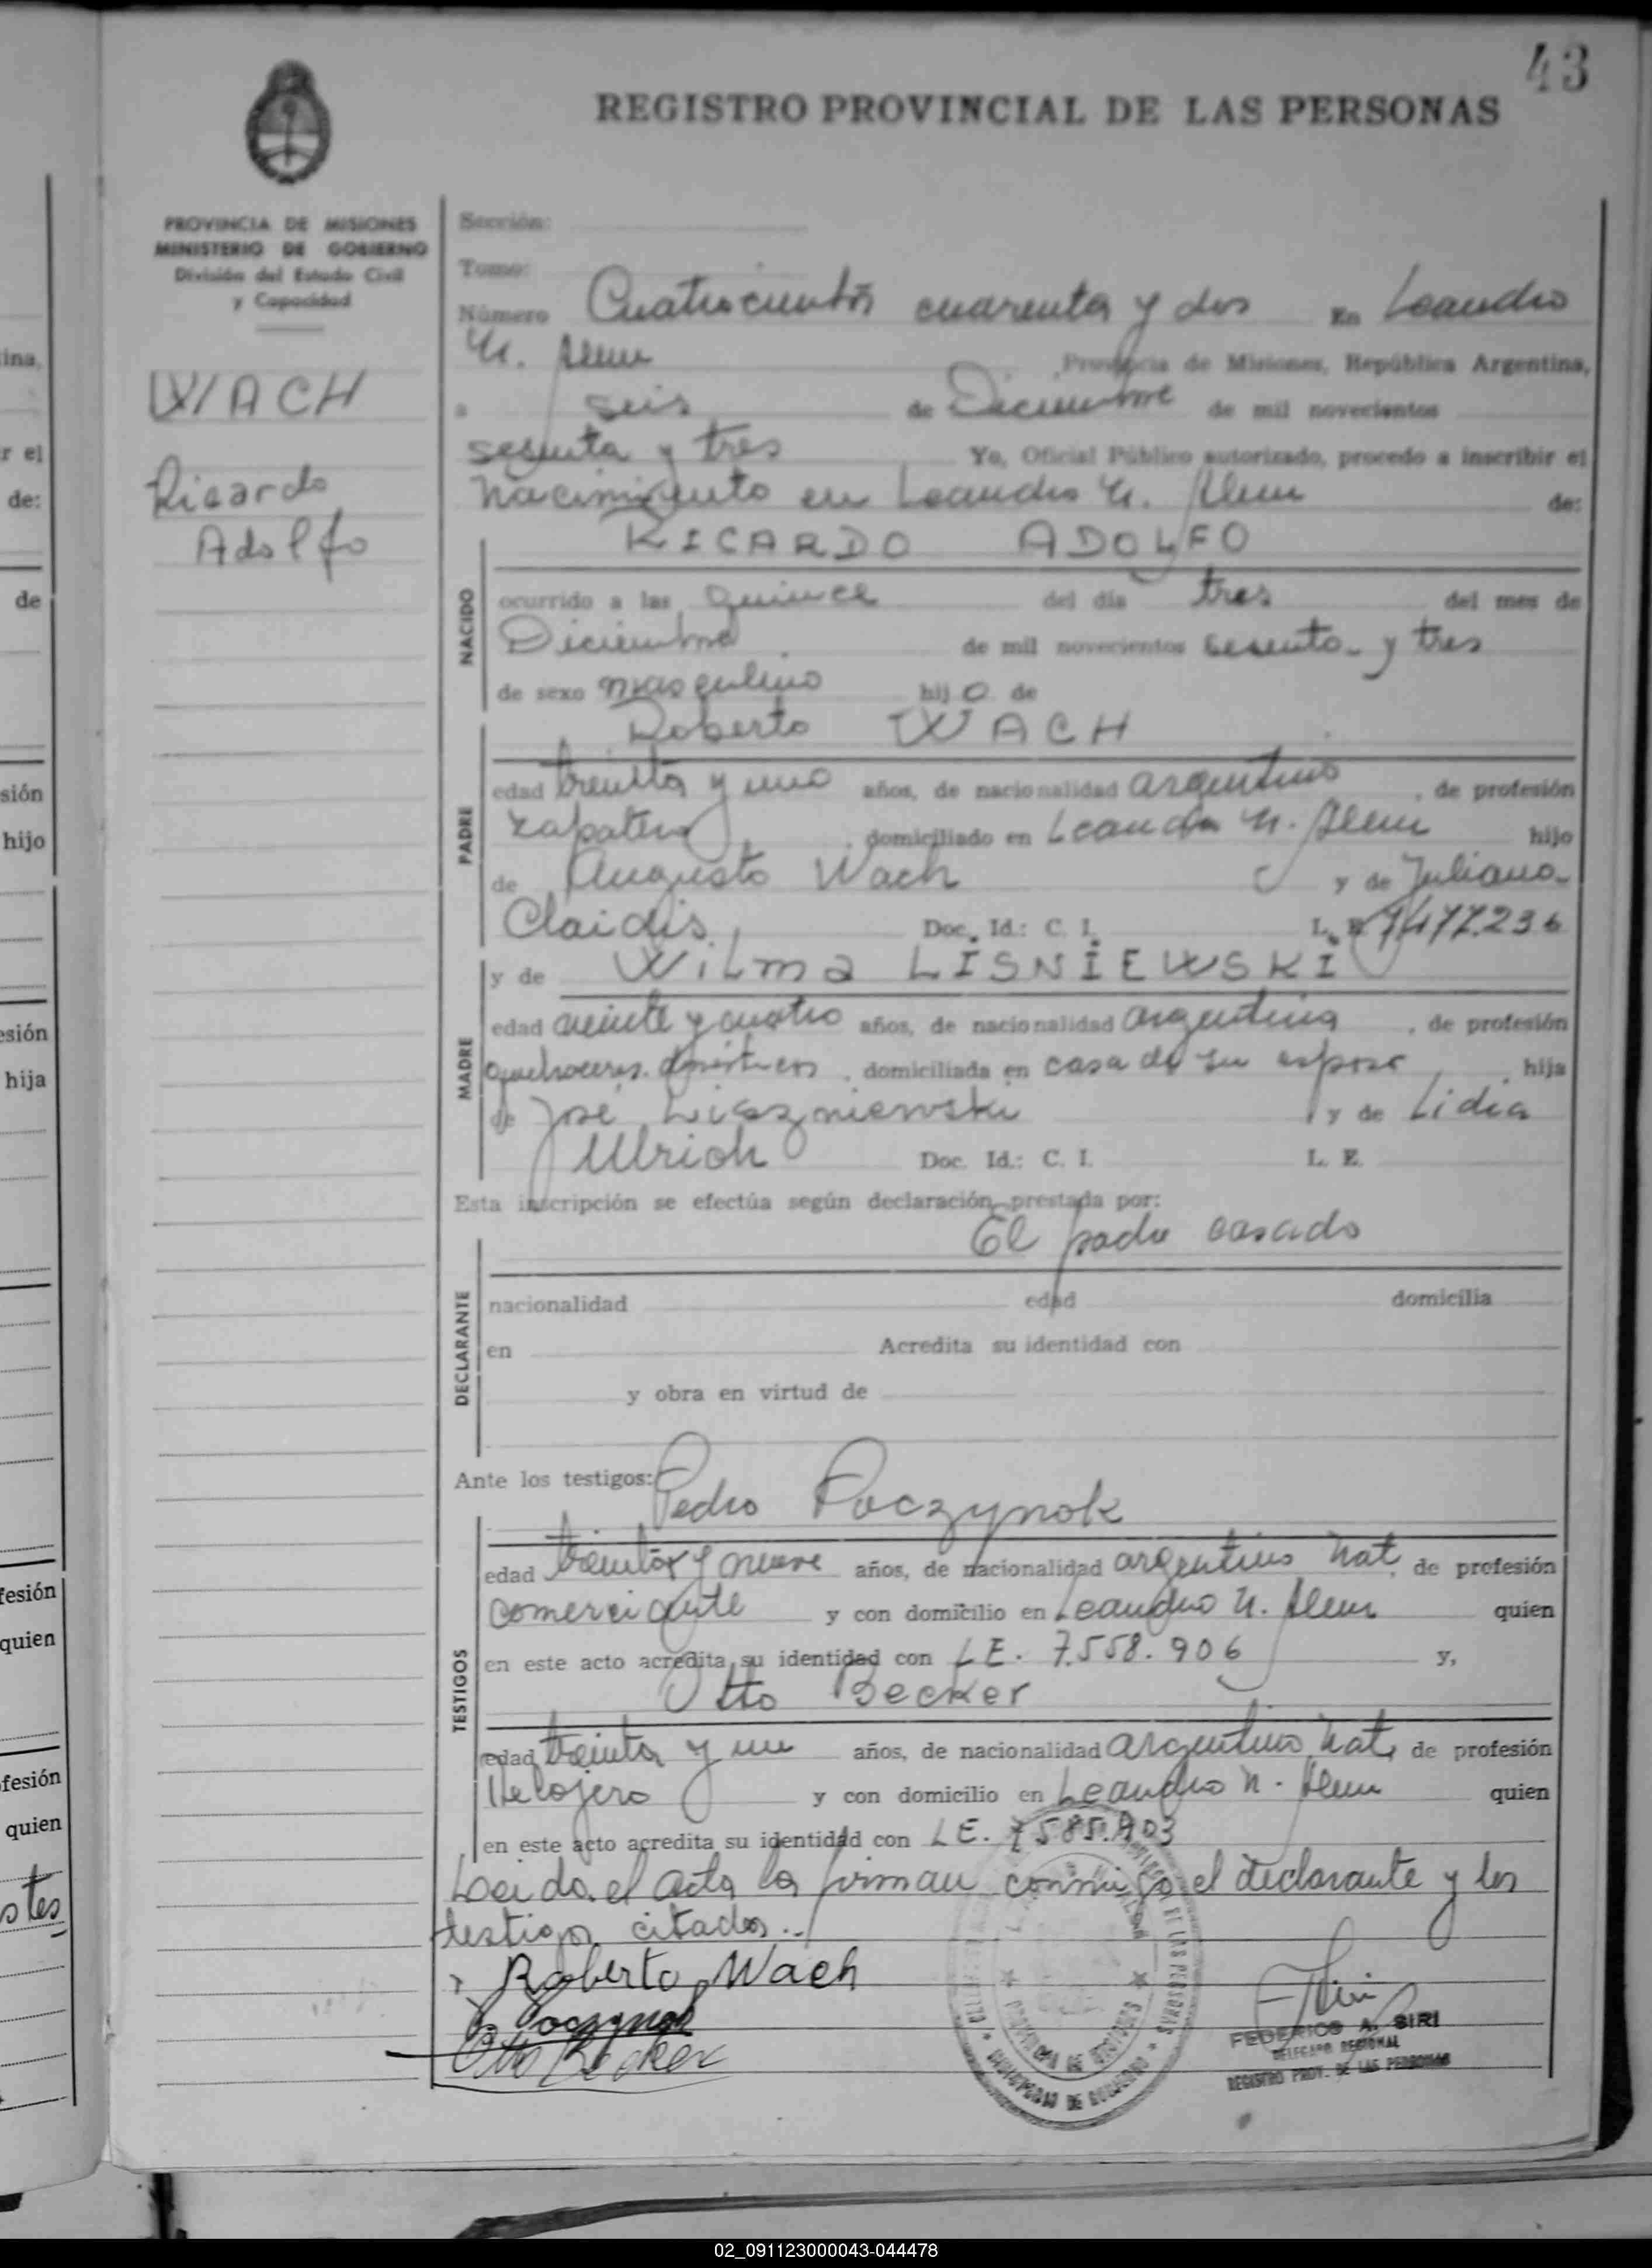 43
REGISTRO PROVINCIAL DE LAS PERSONAS
PROVINCIA DE MISIONES
MINISTERIO DE GOBIERNO
División del Estado Civil
y Capacidad
WACH
Ricardo
Adolfo
Sección:
Tomo:
Número Cuatrocientos cuarenta y dos En Leandro
N. Alem Provincia de Misiones, República Argentina,
a seis de Diciembre de mil novecientos
sesenta y tres Yo, Oficial Público autorizado, procedo a inscribir el
nacimiento en Leandro N. Alem de:
RICARDO ADOLFO
NACIDO
ocurrido a las quince del día tres del mes de
Diciembre de mil novecientos sesenta y tres
de sexo masculino hijo de
Roberto WACH
PADRE
edad treinta y uno años, de nacionalidad argentino, de profesión
zapatero domiciliado en Leandro N. Alem hijo
de Augusto Wach y de Juliana
Claidis. Doc. Id.: C. I. L. E. 7477.236
MADRE
y de Wilma LISNIEWSKI
edad veinte y cuatro años, de nacionalidad argentina, de profesión
quehaceres domésticos, domiciliada en casa de su esposo hija
de José Liszniewski y de Lidia
Ulrich Doc. Id.: C. I. L. E.
Esta inscripción se efectúa según declaración prestada por:
El padre casado
DECLARANTE
nacionalidad edad domicilia
en Acredita su identidad con
y obra en virtud de
Ante los testigos: Pedro Poczynok
TESTIGOS
edad treinta y nueve años, de nacionalidad argentino nat, de profesión
comerciante y con domicilio en Leandro N. Alem quien
en este acto acredita su identidad con LE. 7.558.906 y,
Otto Becker
edad treinta y un años, de nacionalidad argentino nat, de profesión
Relojero y con domicilio en Leandro N. Alem quien
en este acto acredita su identidad con LE.
Leida el acta la firman conmigo el declarante y los
testigos citados.
Roberto Wach
P. Poczynok
Otto Becker
FEDERICO A. SIRI
DELEGADO REGIONAL
REGISTRO PROV. DE LAS PERSONAS
02_091123000043-044478